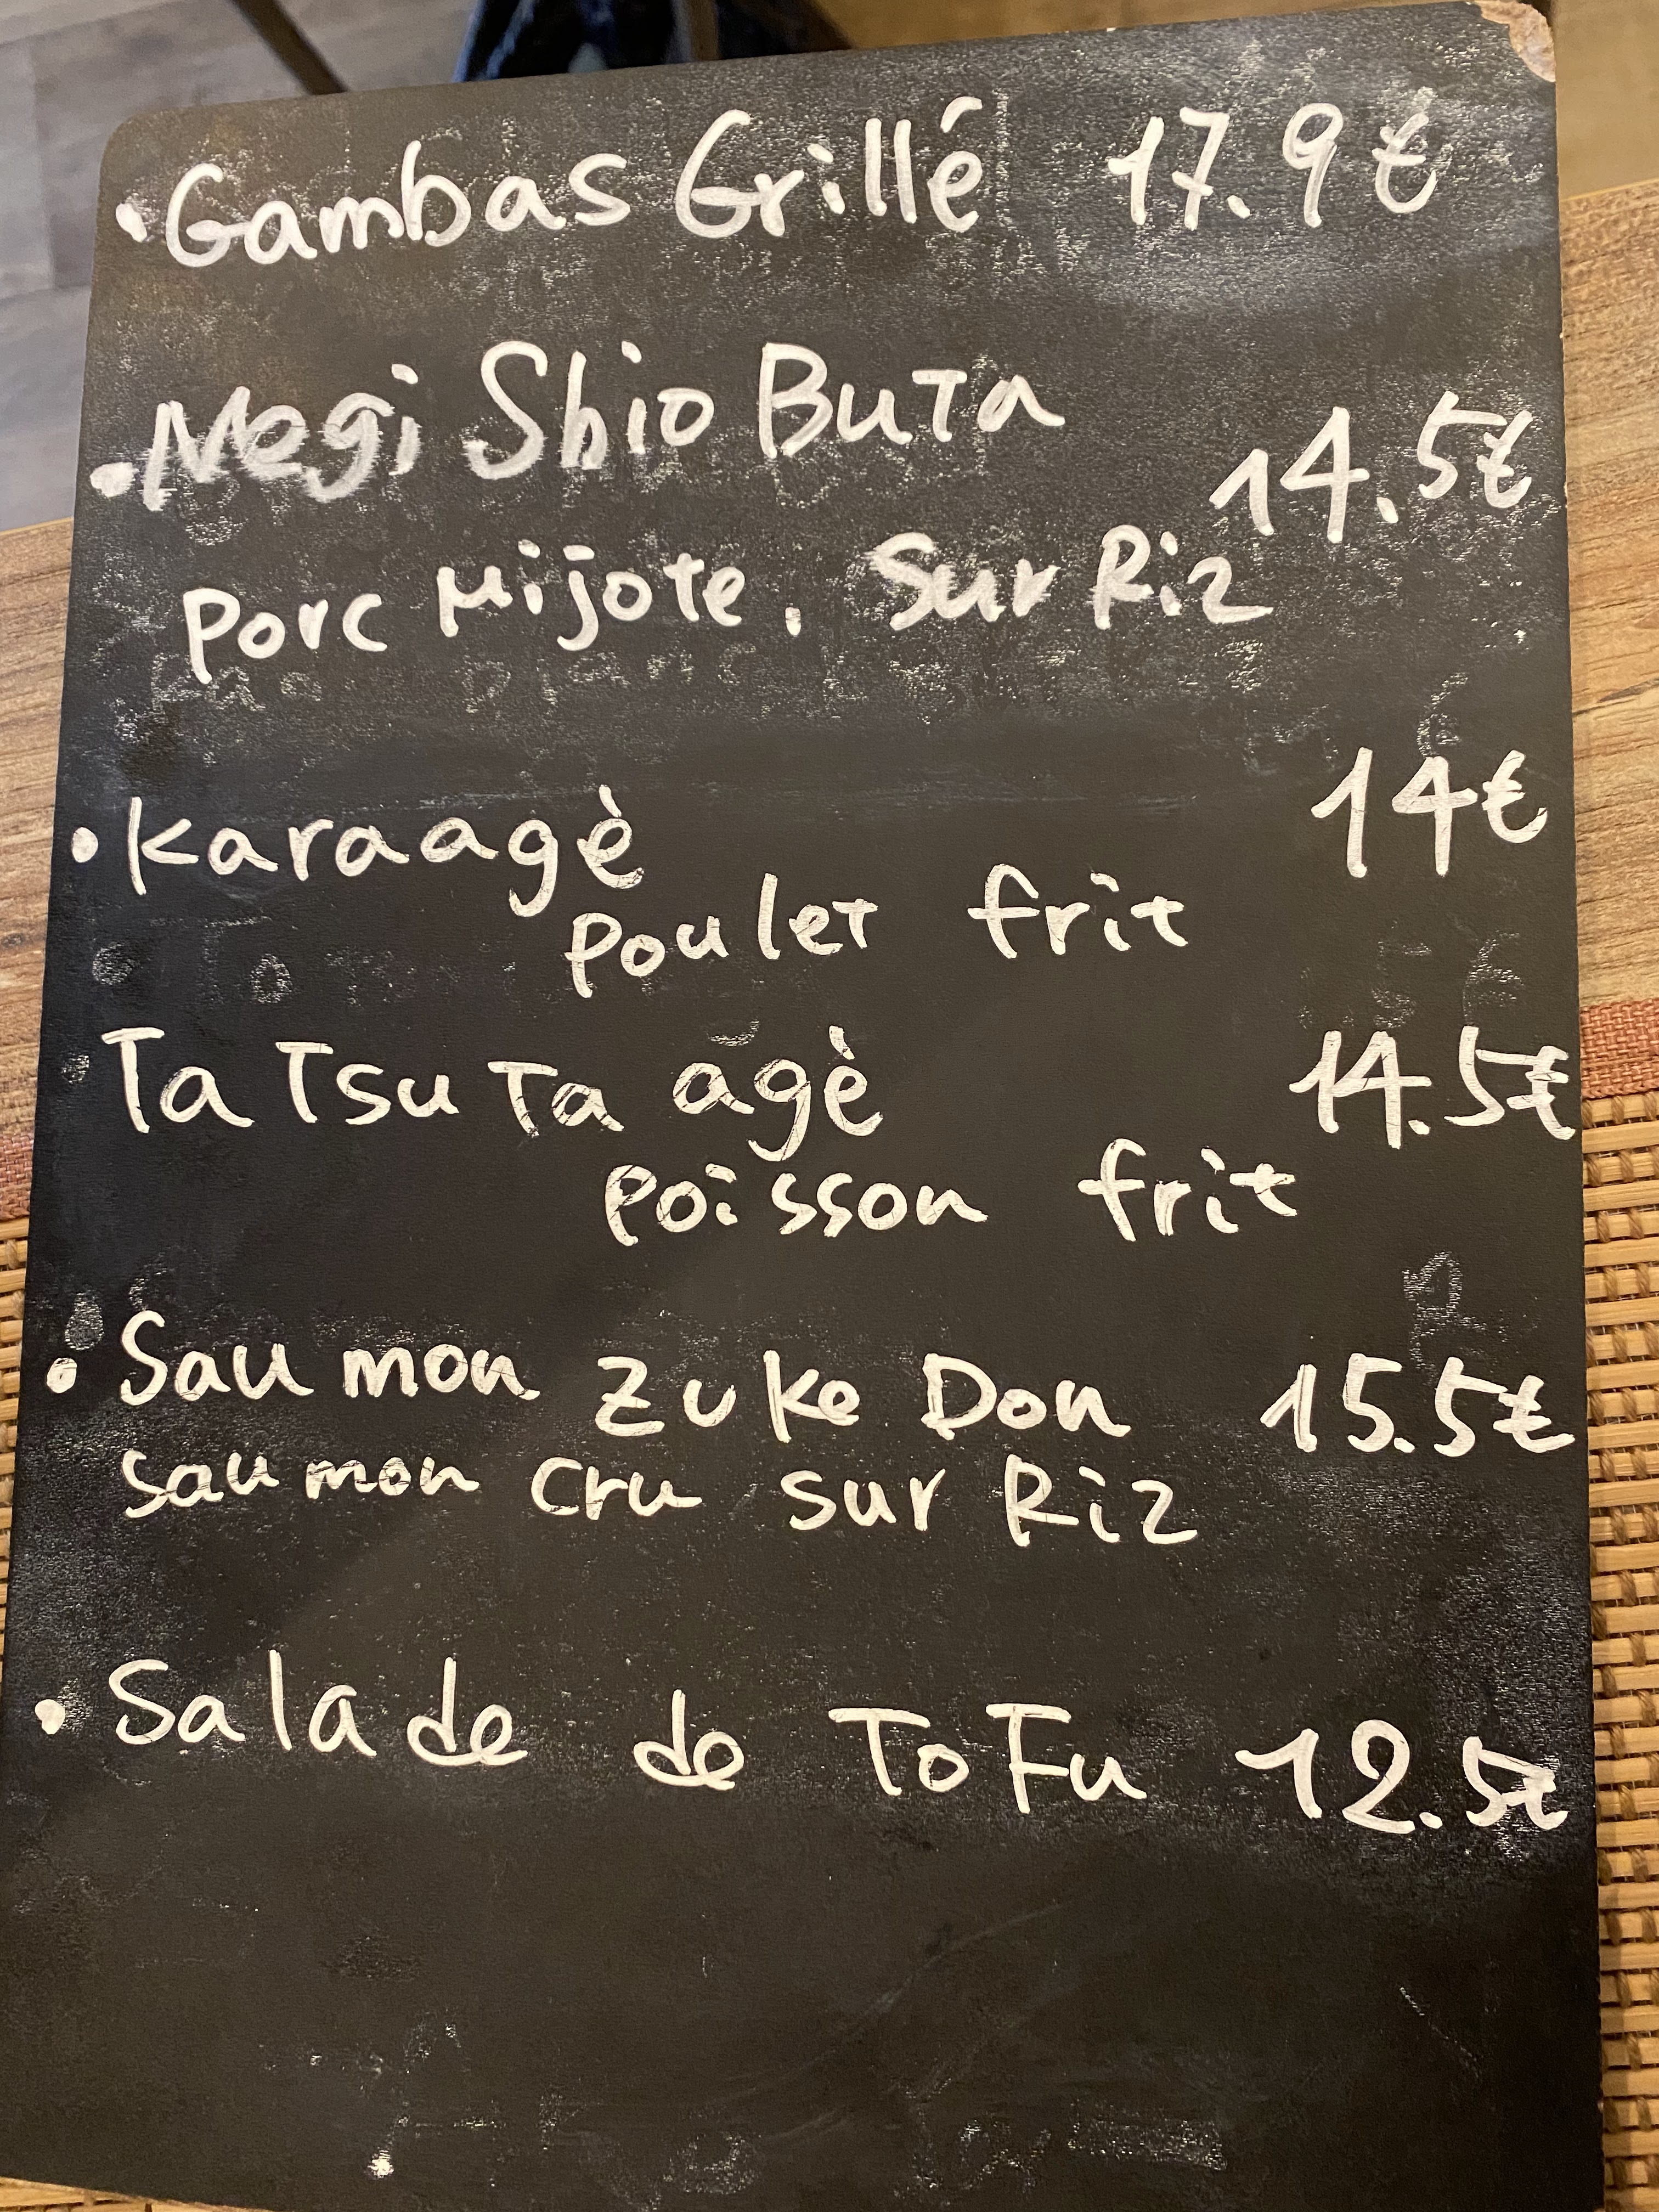 • Gambas Grillé 17.9€
• Negi Shio Buta 14.5€
Porc Mijote. Sur Riz
• Karaagè 14€
Poulet frit
Tatsuta agè 14.5€
Poisson frit
• Saumon Zuke Don 15.5€
Saumon cru sur Riz
• Salade de ToFu 12.5€